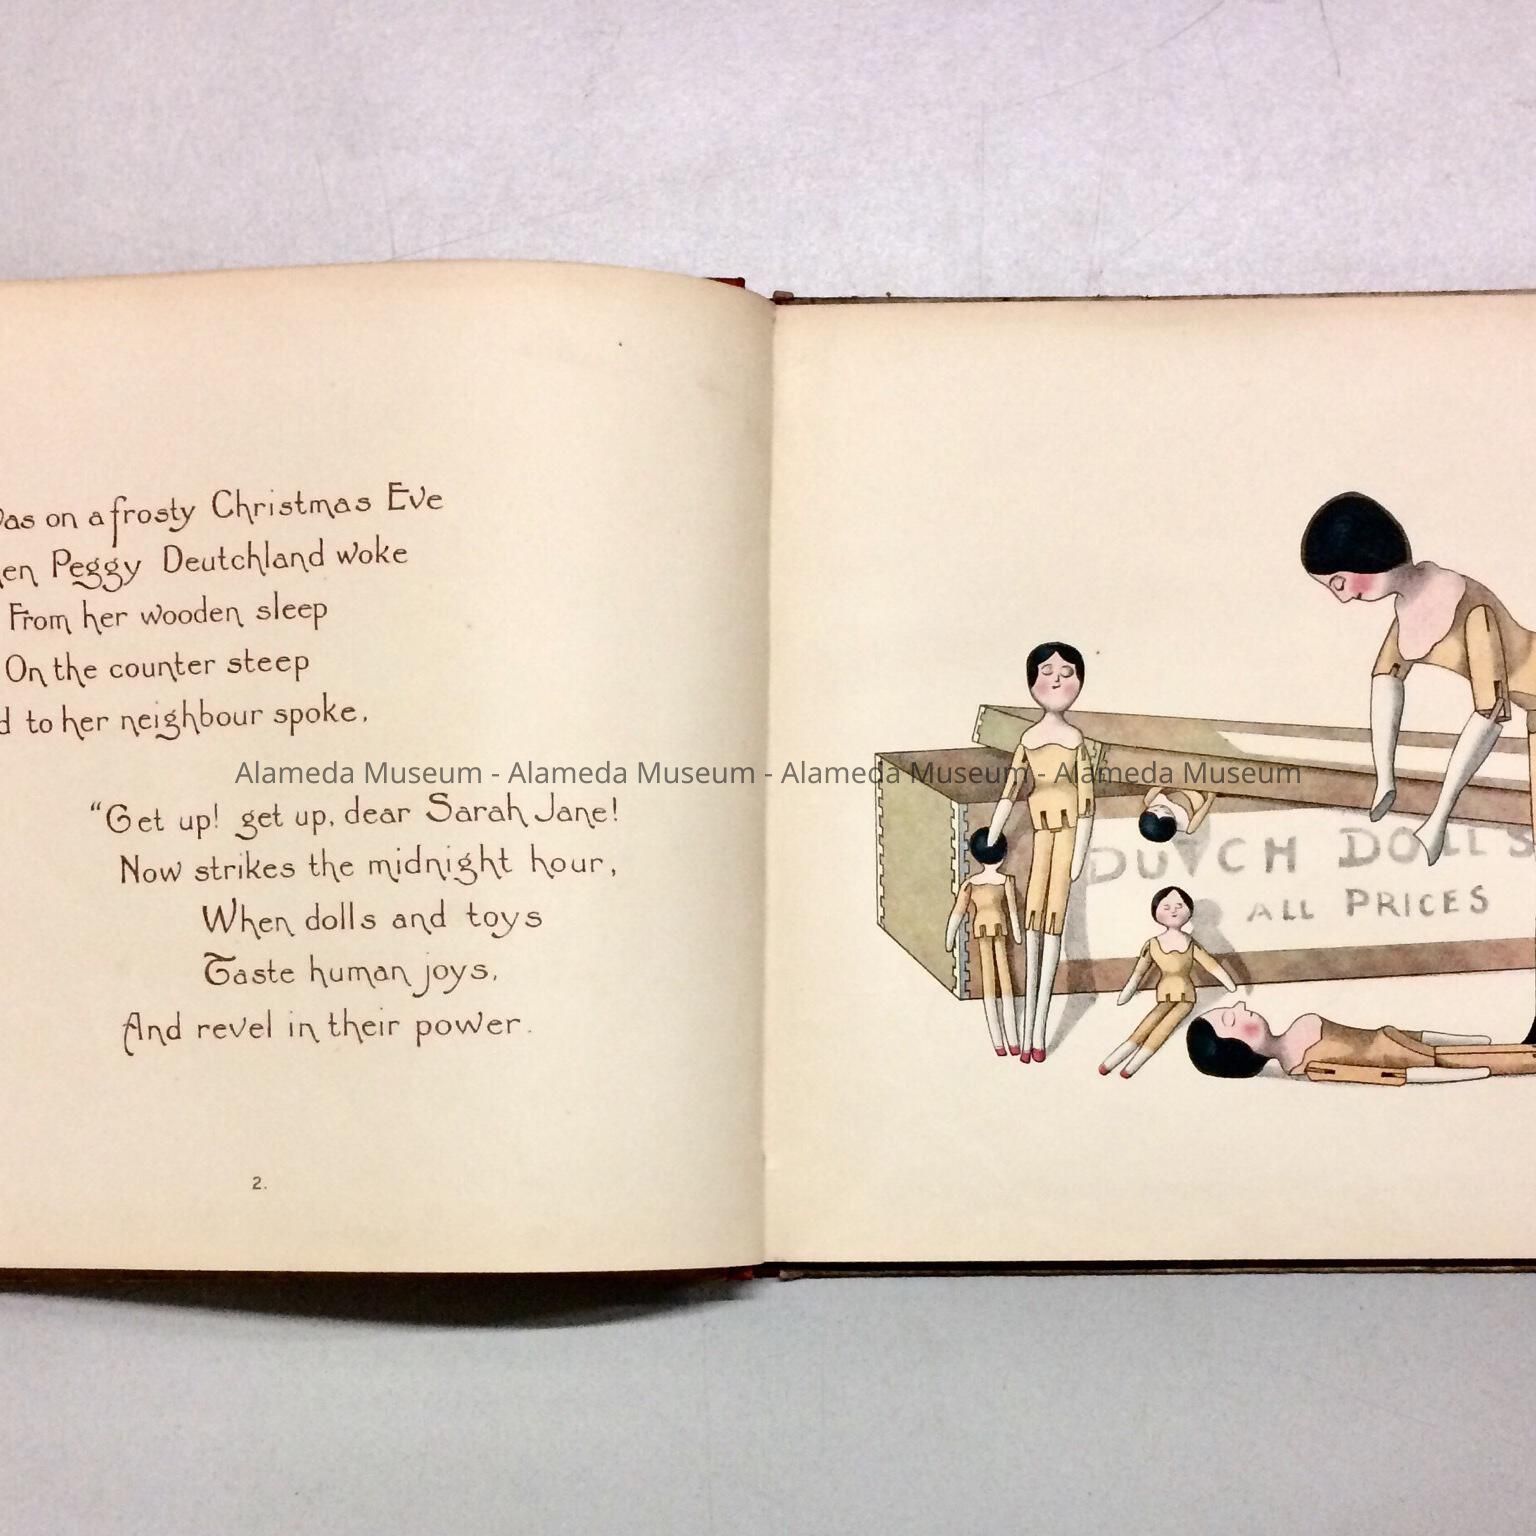 as on a frosty Christmas Eve
en Peggy Deutchland woke
From her wooden sleep
On the counter steep
d to her neighbour spoke,
Alameda Museum - Alameda Museum - Alameda Museum - Alameda Museum
“Get up! get up, dear Sarah Jane!
Now strikes the midnight hour,
When dolls and toys
Taste human joys,
And revel in their power.
2.
DUTCH DOLLS
ALL PRICES